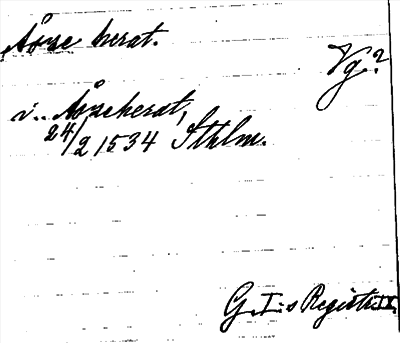 Åsne herat.
Vg?
i. Åsneherat,
24/2 1534 Sthlm.
G. I:s Registr. IX.